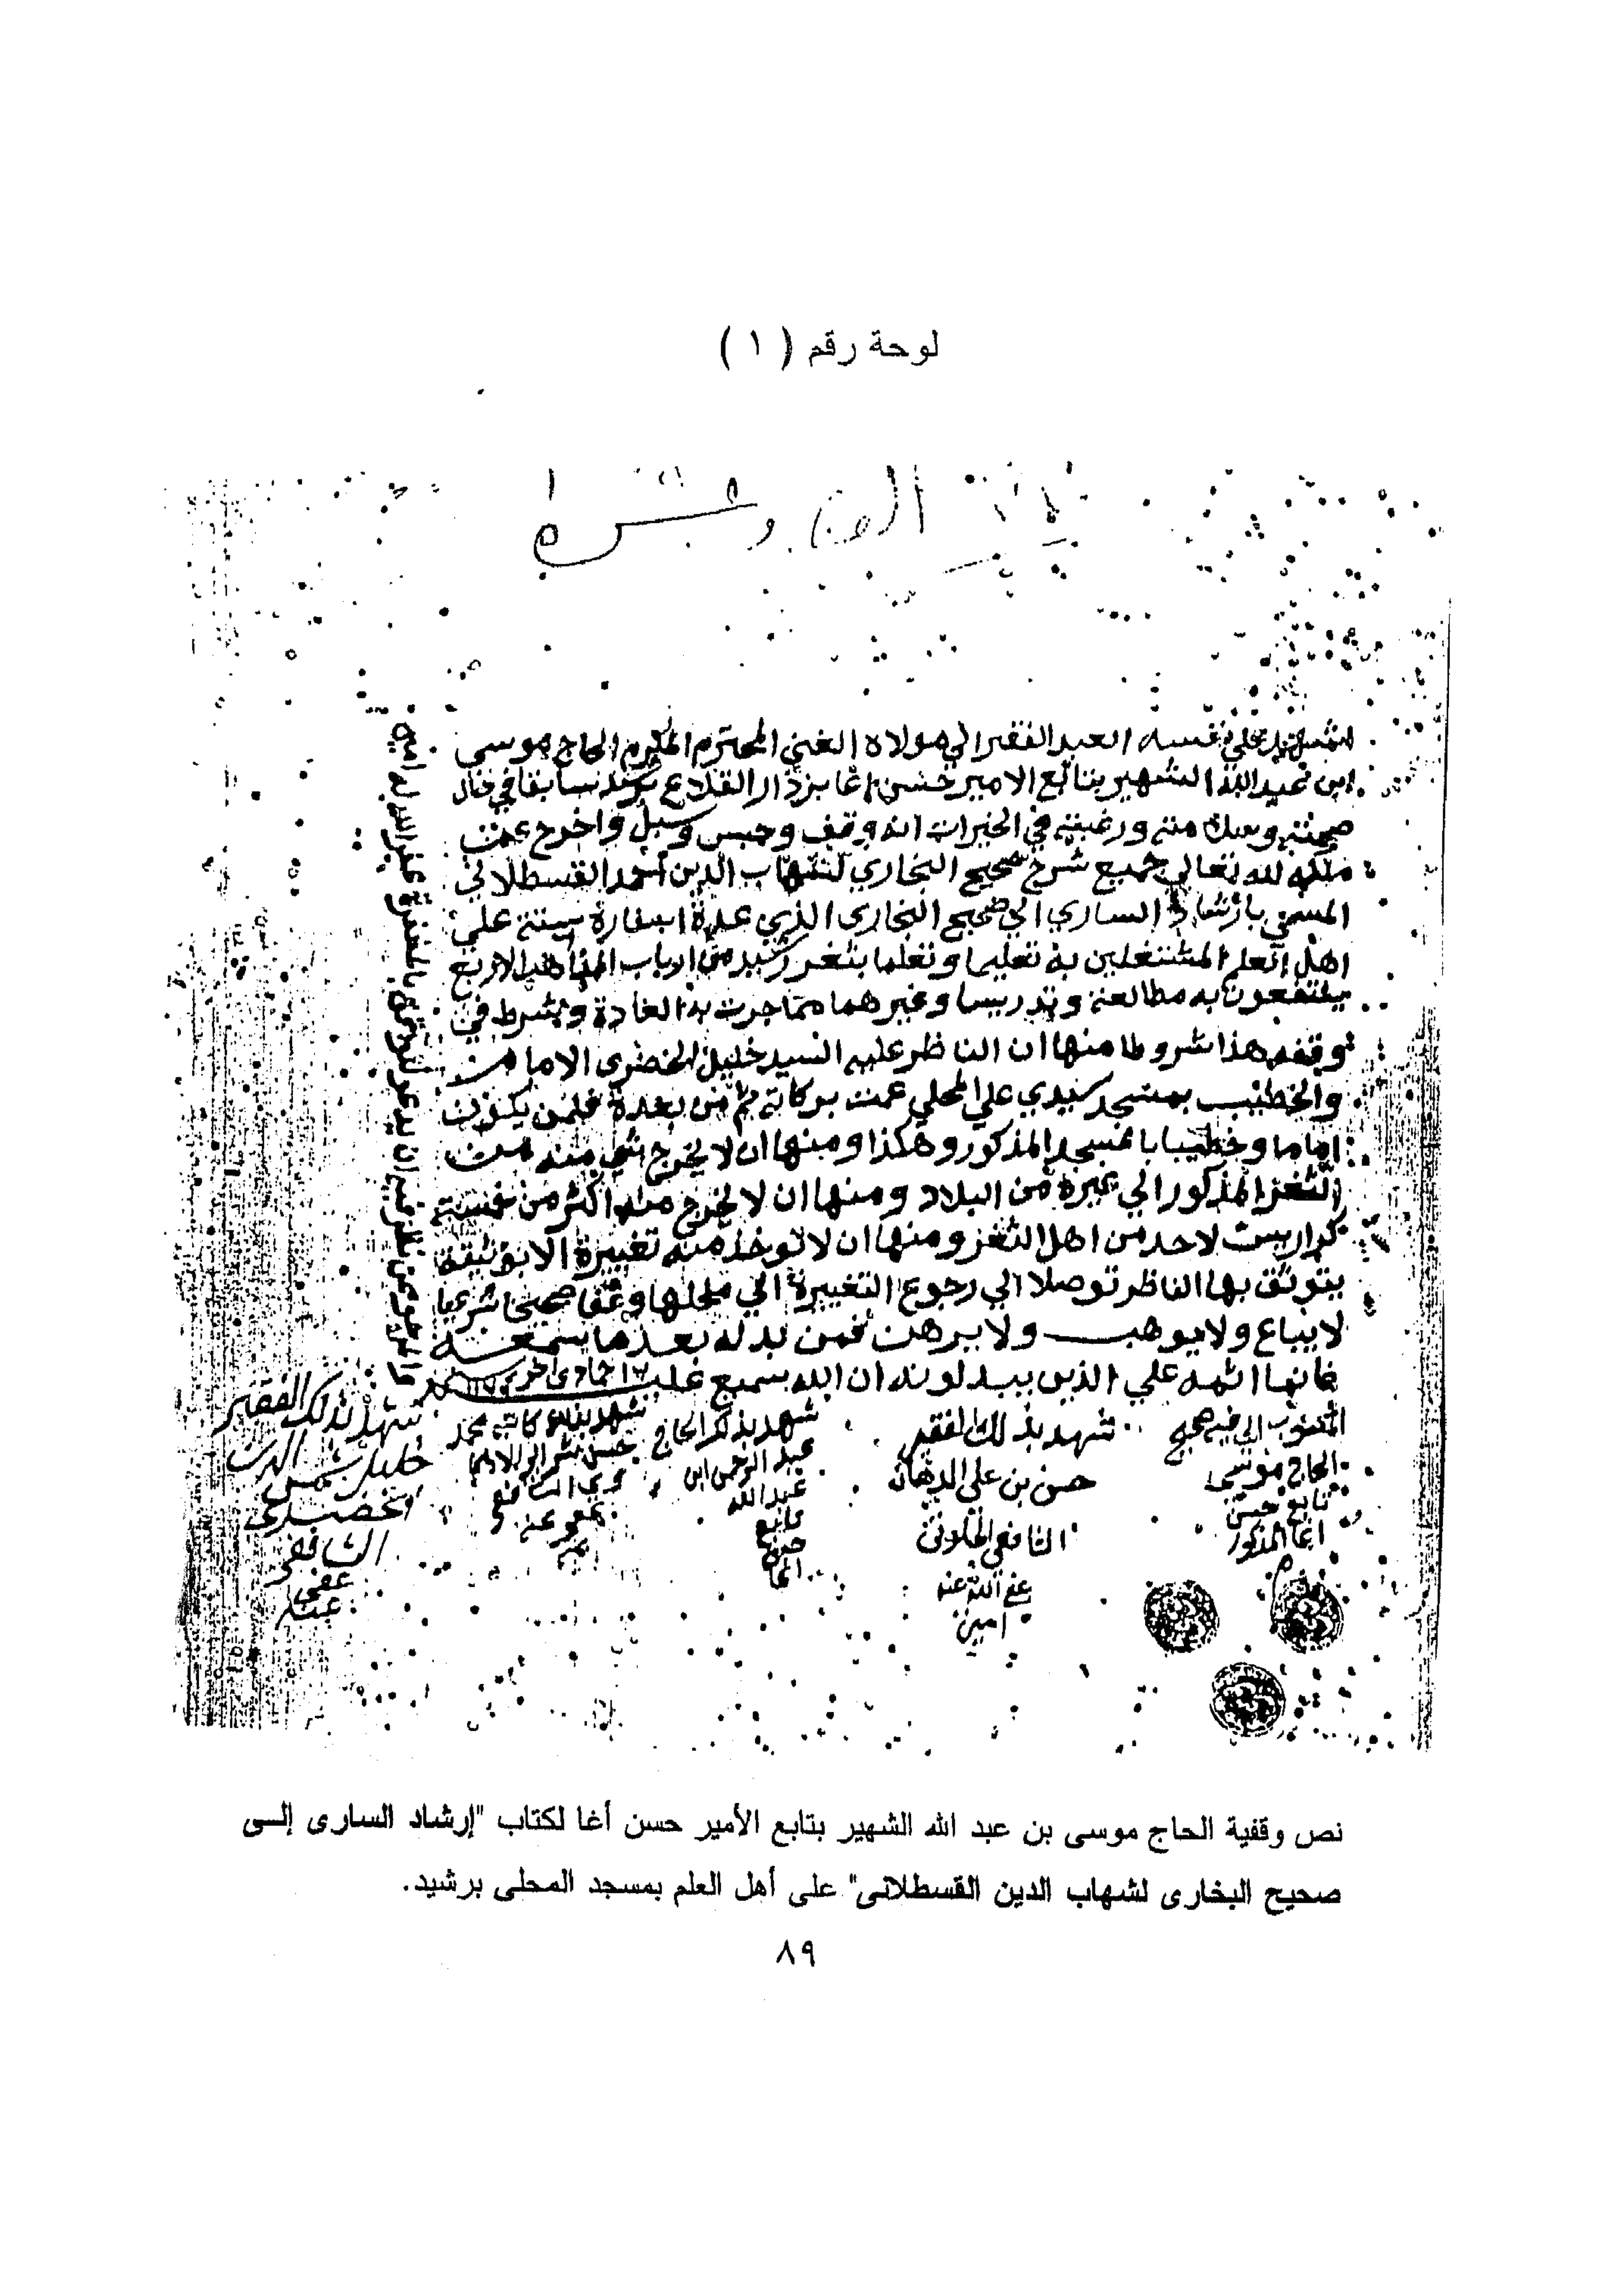 لوحة رقم ( ١ )
على نفسه العبد الفقير الي مولاه الغني المحترم المكرم الحاج موسي
ابن عبد الله الشهير بتابع الامير حسن اغا بزدار القلاع سابقا في حال
صحته ورغبته في الخيرات انه وقف وحبس وسبل واخرج عن
ملكه لله تعالي جميع شرح صحيح البخاري لشهاب الدين احمد القسطلاني
المسمي بارشاد الساري الي صحيح البخاري الذي عدة اسفاره ستة علي
اهل العلم المشتغلين به تعليما وتعلما بثغر رشيد من ارباب المذاهب الاربع
ينتفعون به مطالعة وتدريسا وغيرهما مما جرت به العادة وشرط في
وقفه هذا شروطا منها ان الناظر عليه السيد خليل الخضري الامام
والخطيب بمسجد سيدي علي المحلي عمت بركاته ثم من بعده فلمن يكون
اماما وخطيبا بالمسجد المذكور وهكذا ومنها ان لا يخرج شي منه من
الثغر المذكور الي غيره من البلاد ومنها ان لا يخرج منه اكثر من خمسة
كراريس لاحد من اهل الثغر ومنها ان لا توخذ منه تغييرة الا بوثيقة
يتوثق بها الناظر توصلا الي رجوع التغييرة الي محلها وقفا صحيحا شرعيا
لا يباع ولا يوهب ولا يرهن فمن بدله بعد ما سمعه
فانما اثمه علي الذين يبدلونه ان الله سميع عليم
المنسوب الي فيه صحيح
الحاج موسى
تابع حسن
اغا المذكور
شهد بذلك الفقير
حسن بن علي الدهان
الشافعي الخلوتي
عفي الله عنه
امين
شهد بذلك الحاج
عبد الرحمن ابن
عبد الله
تابع
حسن
اغا
شهد بذلك كاتبه محمد
الشافعي
عفي عنه
شهد بذلك الفقير
خليل شمس الدين
الخضري
الشافعي
عفى
عنه
نص وقفية الحاج موسى بن عبد الله الشهير بتابع الأمير حسن أغا لكتاب "إرشاد السارى إلـــى
صحيح البخارى لشهاب الدين القسطلانى" على أهل العلم بمسجد المحلى برشيد.
٨٩